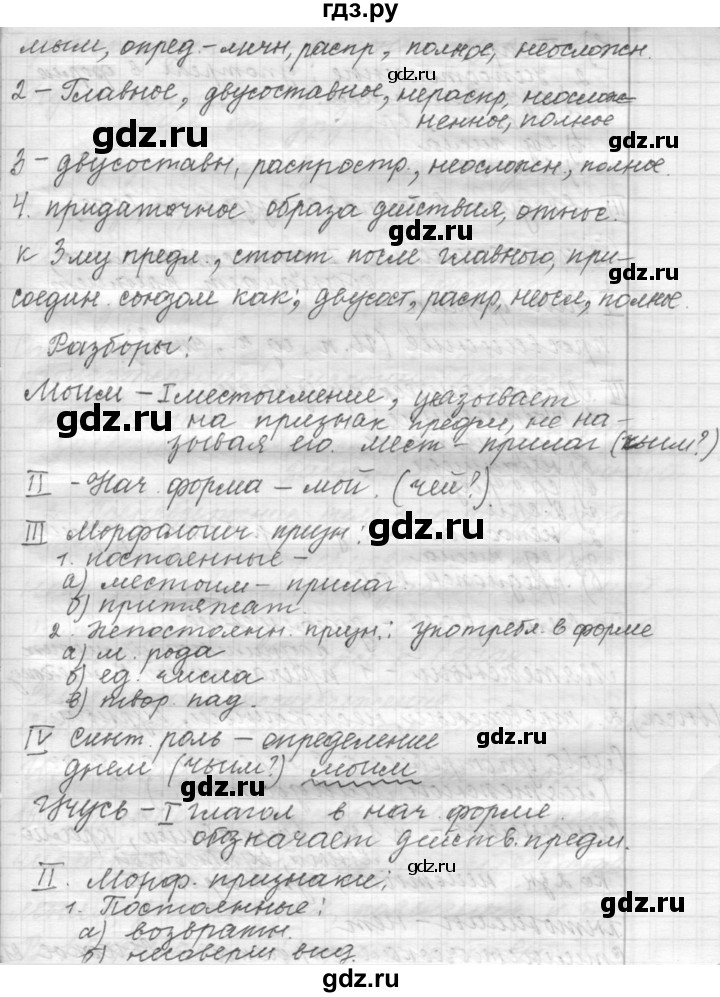 гдз.ру
мым, опред.-личн, распр, полное, неосложн.
2 - Главное, двусоставное, нераспр, неослож-
ненное, полное
3 - двусоставн, распростр., неосложн, полное.
4. придаточное образа действия, относ.
к 3му предл., стоит после главного, при-
соедин. союзом как; двусост, распр, неосл, полное.
Разборы:
Моим - I местоимение, указывает
на признак предм, не на-
зывая его. мест - прилаг (чьим?)
II - Нач. форма - мой. (чей?)
III Морфологич призн:
1. постоянные -
а) местоим - прилаг.
б) притяжат.
2. Непостоянн. призн.: употребл. в форме
а) м. рода
б) ед. числа
в) твор. пад.
IV Синт. роль - определение
днем (чьим?) моим
Учусь - I глагол в нач. форме.
обозначает действ. предм.
II. Морф. признаки:
1. Постоянные:
а) возвратн.
б) несоверш вид.
gdz.ru
gdz.ru
gdz.ru
gdz.ru
gdz.ru
gdz.ru
gdz.ru
gdz.ru
gdz.ru
gdz.ru
gdz.ru
gdz.ru
gdz.ru
гдз.ру